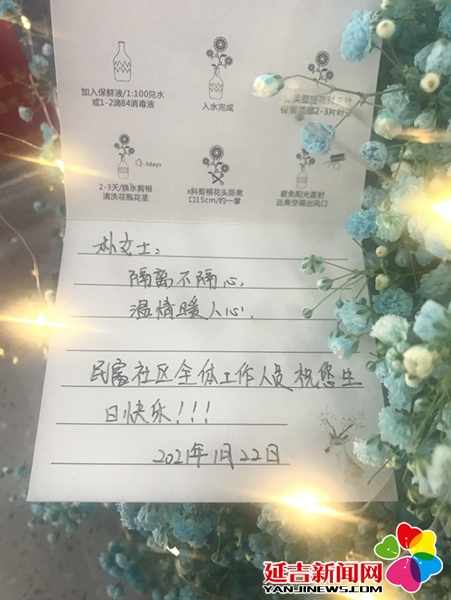 加入保鲜液/1:100兑水
或1-2滴84消毒液
入水完成
2-3days
2-3天/换水剪根
清洗花瓶花茎
斜剪根花头距离
口15cm/约一拳
避免阳光直射
远离空调出风口
朴女士：
隔离不隔心，
温情暖人心，
民富社区全体工作人员祝您生
日快乐！！！
2021年1月22日
延吉新闻网
WWW.YANJINEWS.COM